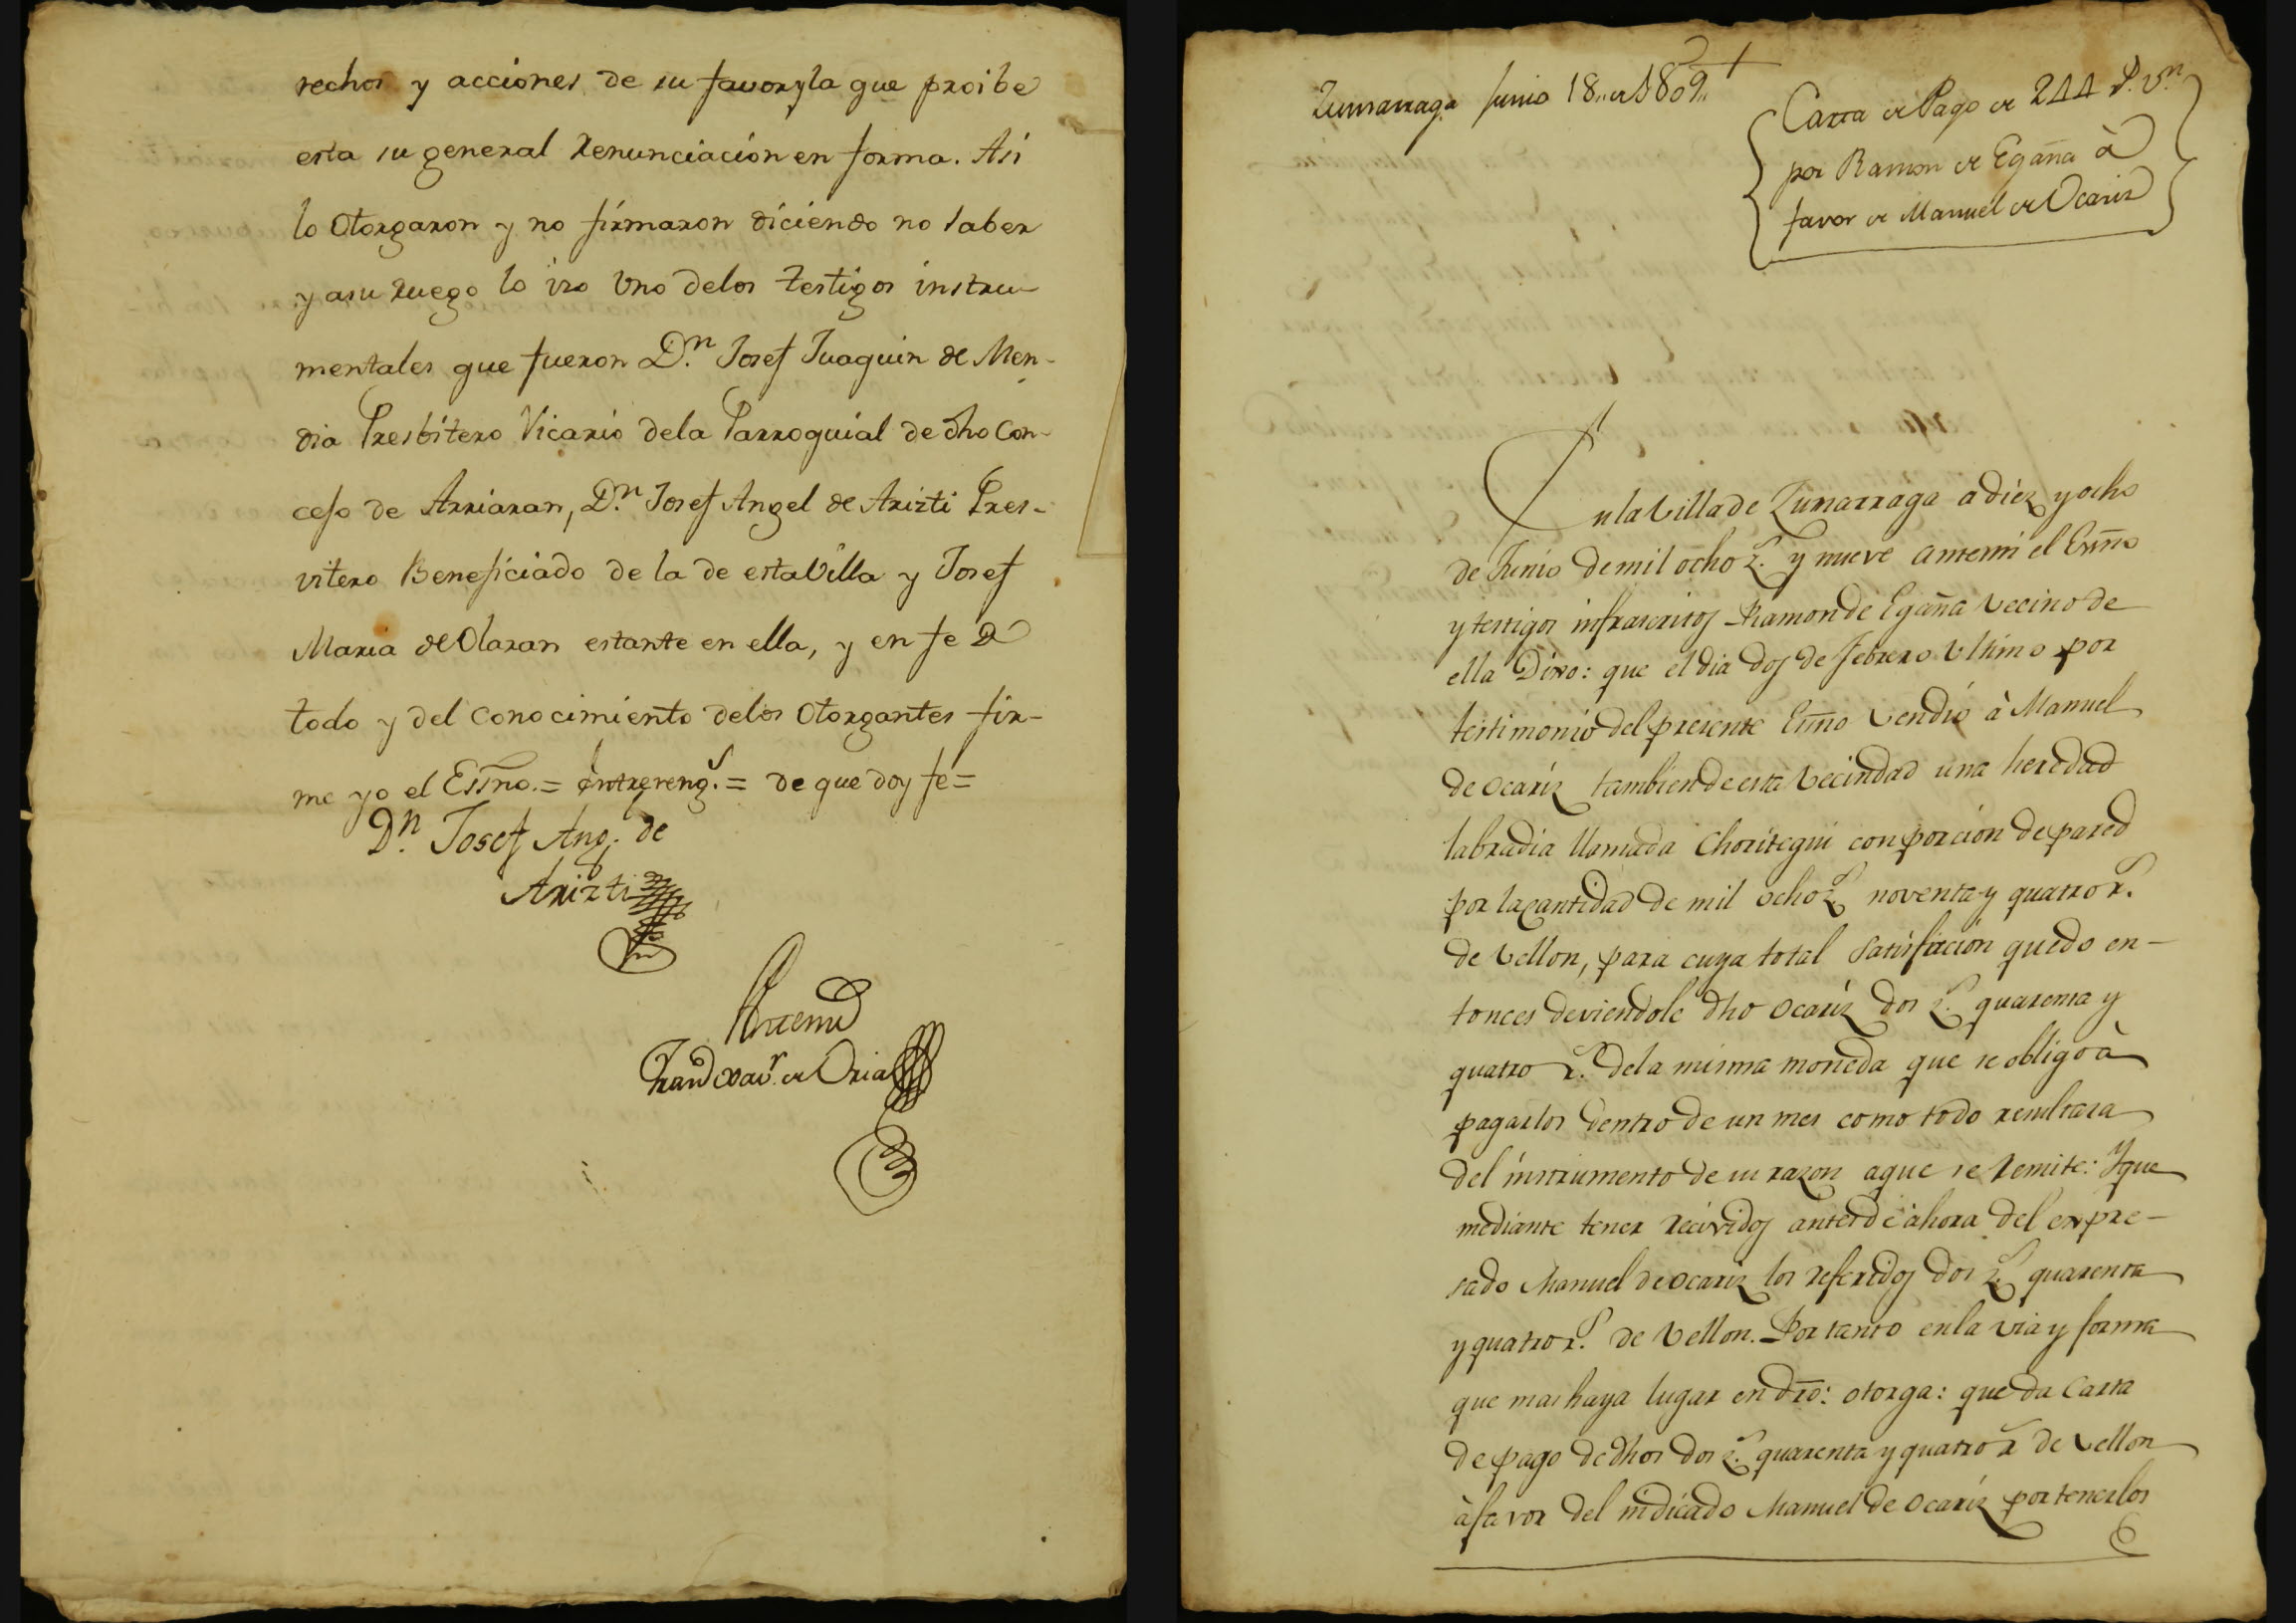 rechos y acciones de su favor y la que proibe
esta su general Renunciacion en forma. Asi
lo Otorgaron y no firmaron diciendo no saber
y asu Ruego lo izo Uno delos testigos instru-
mentales que fueron D.n Josef Juaquin de Men-
dia Presbitero Vicario dela Parroquial de dho Con-
cejo de Arriaran, D.n Josef Angel de Arizti Pres-
vitero Beneficiado de la de esta Villa y Josef
Maria de Olaran estante en ella, y en fe de
todo y del conocimiento delos Otorgantes fir-
me yo el Essno. = entrereng.s = de que doy fe =
D.n Josef Ang. de
Arizti
Antemi
Fran.co Xav.r de Oria
Zumarraga Junio 18,, de 1809,,
Carta de Pago de 244 R.s V.n
por Ramon de Egaña à
favor de Manuel de Ocariz
En la Villa de Zumarraga a diez y ocho
de Junio de mil ocho z.s y nueve antemi el Essno
y testigos infrascritos Ramon de Egaña Vecino de
ella Dixo: que el dia dos de Febrero Ultimo por
testimonio del presente Essno Vendió à Manuel
de Ocariz tambien de esta Vecindad una heredad
labradia llamada Choritegui con porcion de pared
por la cantidad de mil ocho z.s noventa y quatro r.s
de Vellon, para cuya total satisfacion quedo en-
tonces deviendole dho Ocariz dos z.s quarenta y
quatro r.s dela misma moneda que se obligo à
pagarlos dentro de un mes como todo resultara
del instrumento de su razon aque se Remite: Y que
mediante tener Recividos antes de ahora del expre-
sado Manuel de Ocariz los referidos dos z.s quarenta
y quatro r.s de Vellon. Por tanto en la via y forma
que mas haya lugar en dro: otorga: que da Carta
de pago de dhos dos z.s quarenta y quatro r.s de Vellon
à favor del indicado Manuel de Ocariz por tenerlos